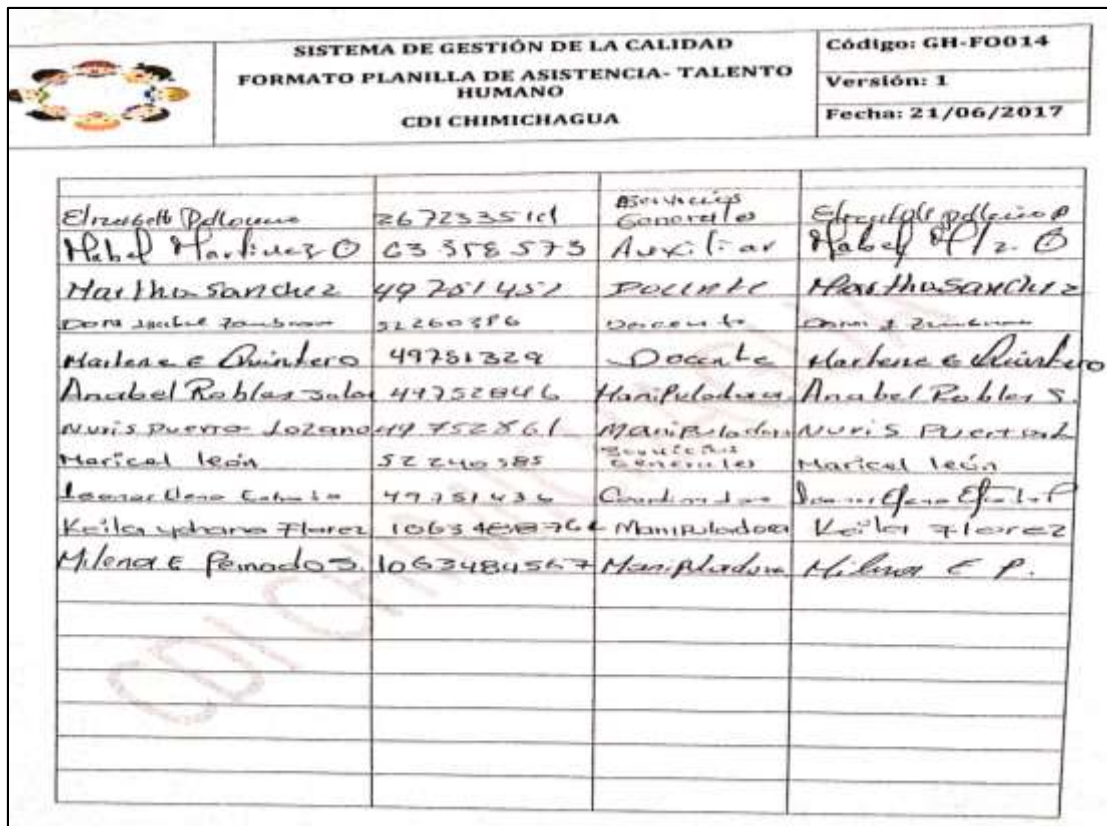 SISTEMA DE GESTIÓN DE LA CALIDAD
FORMATO PLANILLA DE ASISTENCIA- TALENTO
HUMANO
CDI CHIMICHAGUA
Código: GH-FO014
Versión: 1
Fecha: 21/06/2017
Generales
Mabel Martinez O 63 358 573 Auxiliar Mabel M/z. O
Martha Sanchez 49751451 Docente Martha Sanchez
52260386 Docente
Marlene E Quintero 49751329 Docente Marlene E Quintero
Anabel Robles 49752846 Manipuladora Anabel Robles S.
Nuris Puerta Lozano 49 752 861 Manipuladora Nuris
Maricel león 52240585 Servicios Generales Maricel león
49751436
Keila yohana Florez Manipuladora Keila Florez
Milena E Peinado S. 1063484567 Manipuladora Milena E P.
CDI CHIMICHAGUA